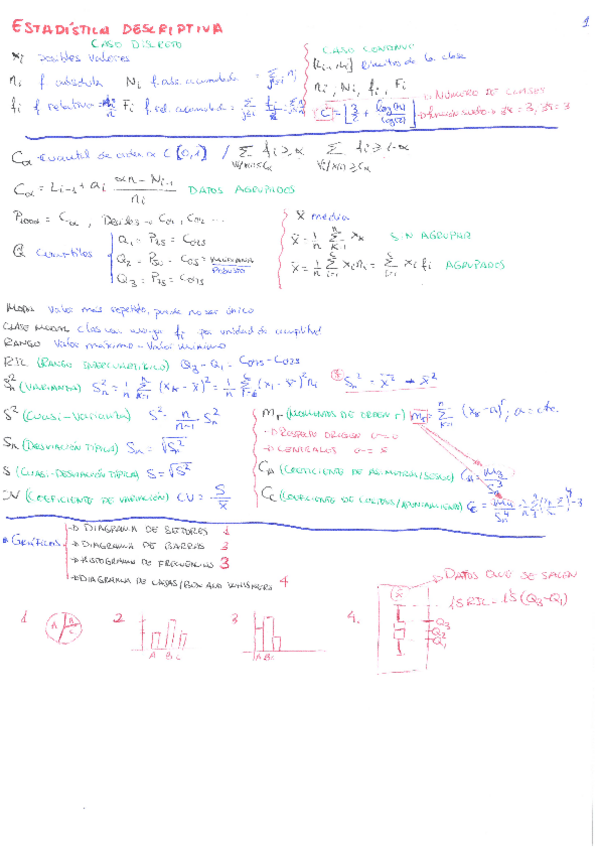 1
ESTADÍSTICA DESCRIPTIVA
CASO DISCRETO
xi posibles valores
ni f absoluta Ni f. abs. acumulada = Σ nj
fi f relativa = ni/n Fi f. rel. acumulada = Σ fj
CASO CONTINUO
extremos de la clase
ni, Ni, fi, Fi
NÚMERO DE CLASES
C = [3/2 + log(n)/log(2)]
Cα cuantil de orden α ∈ [0,1] / Σ fi ≥ α Σ fi ≥ 1-α
Cα = Li-1 + ai (αn - Ni-1)/ni DATOS AGRUPADOS
P100α = Cα, Deciles → C0'1, C0'2 ...
Q Cuartiles
Q1 = P25 = C0'25
Q2 = P50 = C0'5 = MEDIANA
Q3 = P75 = C0'75
x̄ media
x̄ = 1/n Σ xk SIN AGRUPAR
x̄ = 1/n Σ xi ni = Σ xi fi AGRUPADOS
MODA valor más repetido, puede no ser único
CLASE MODAL clase con mayor fi por unidad de amplitud
RANGO valor máximo - valor mínimo
RIC (RANGO INTERCUARTÍLICO) Q3 - Q1 = C0'75 - C0'25
Sn² (VARIANZA) Sn² = 1/n Σ (xk - x̄)² = 1/n Σ (xi - x̄)² ni
S² (CUASI-VARIANZA) S² = n/(n-1) Sn²
Sn (DESVIACIÓN TÍPICA) Sn = √Sn²
S (CUASI-DESVIACIÓN TÍPICA) S = √S²
CV (COEFICIENTE DE VARIACIÓN) CV = S/x̄
mr (MOMENTOS DE ORDEN r) mr = Σ (xk - a)^r, a = cte.
→ RESPECTO ORIGEN a = 0
→ CENTRALES a = x̄
CA (COEFICIENTE DE ASIMETRÍA/SESGO) CA = m3/Sn³
CC (COEFICIENTE DE CURTOSIS/APUNTAMIENTO) CC = m4/Sn⁴ - 3
GRÁFICOS
→ DIAGRAMA DE SECTORES 1
→ DIAGRAMA DE BARRAS 2
→ HISTOGRAMA DE FRECUENCIAS 3
→ DIAGRAMA DE CAJAS/BOX AND WHISKERS 4
1 A B C
2 A B C
3 A B C
4. x̄ Q3 Q2 Q1
→ DATOS QUE SE SALEN
1'5 RIC = 1'5 (Q3 - Q1)